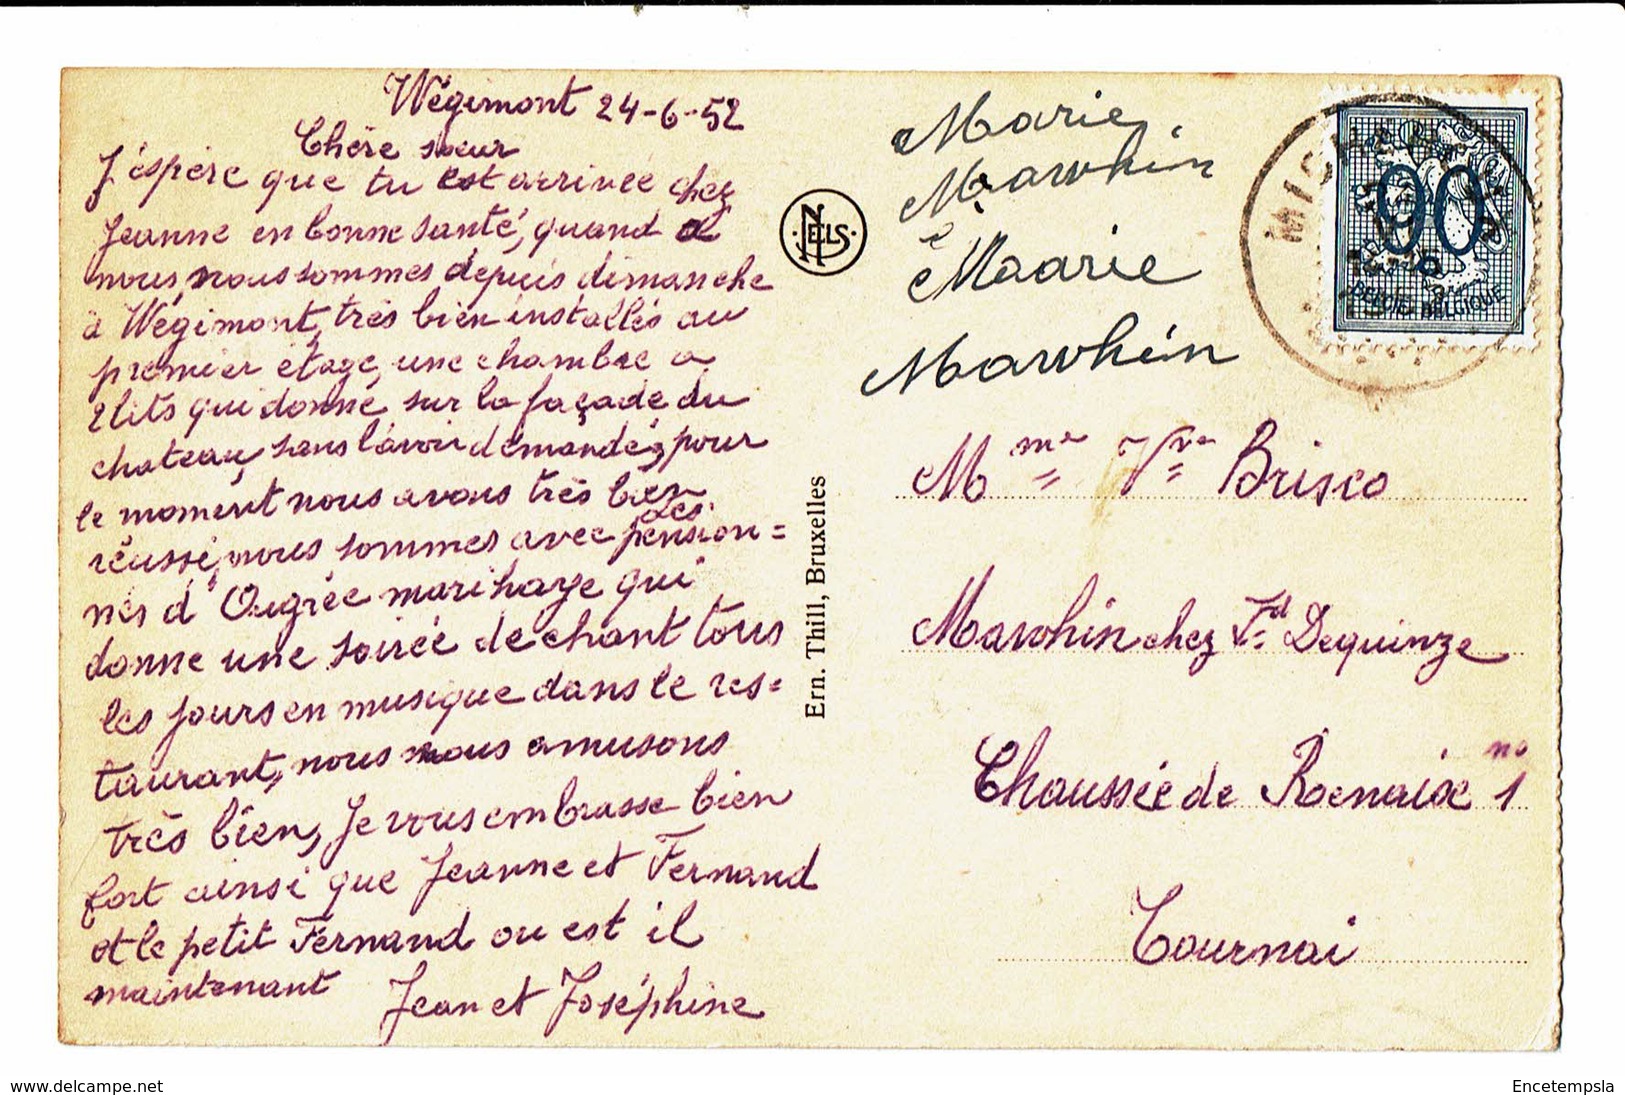 Wégimont 24-6-52
Chére sœur
J'éspére que tu est arrivée chez
Jeanne en bonne santé, quand à
nous, nous sommes depuis dimanche
à Wégimont, très bien installés au
premier étage, une chambre a
2 lits qui donne, sur la façade du
chateau, sans l'avoir demandé, pour
le moment nous avons très bien
réussi, nous sommes avec les pension=
nés d'Ougrée marihaye qui
donne une soirée de chant tous
les jours en musique dans le res=
taurant, nous nous amusons
très bien, Je vous embrasse bien
fort ainsi que Jeanne et Fernand
et le petit Fernand ou est il
maintenant Jean et Joséphine
NELS
Ern. Thill, Bruxelles
Marie
Mawhin
e
Maarie
Mawhin
90
BELGIE-BELGIQUE
Mme Vve Brisco
Mawhin chez Fd Dequinze
Chaussée de Renaix no 1
Tournai
delcampe.net
Encetempsla